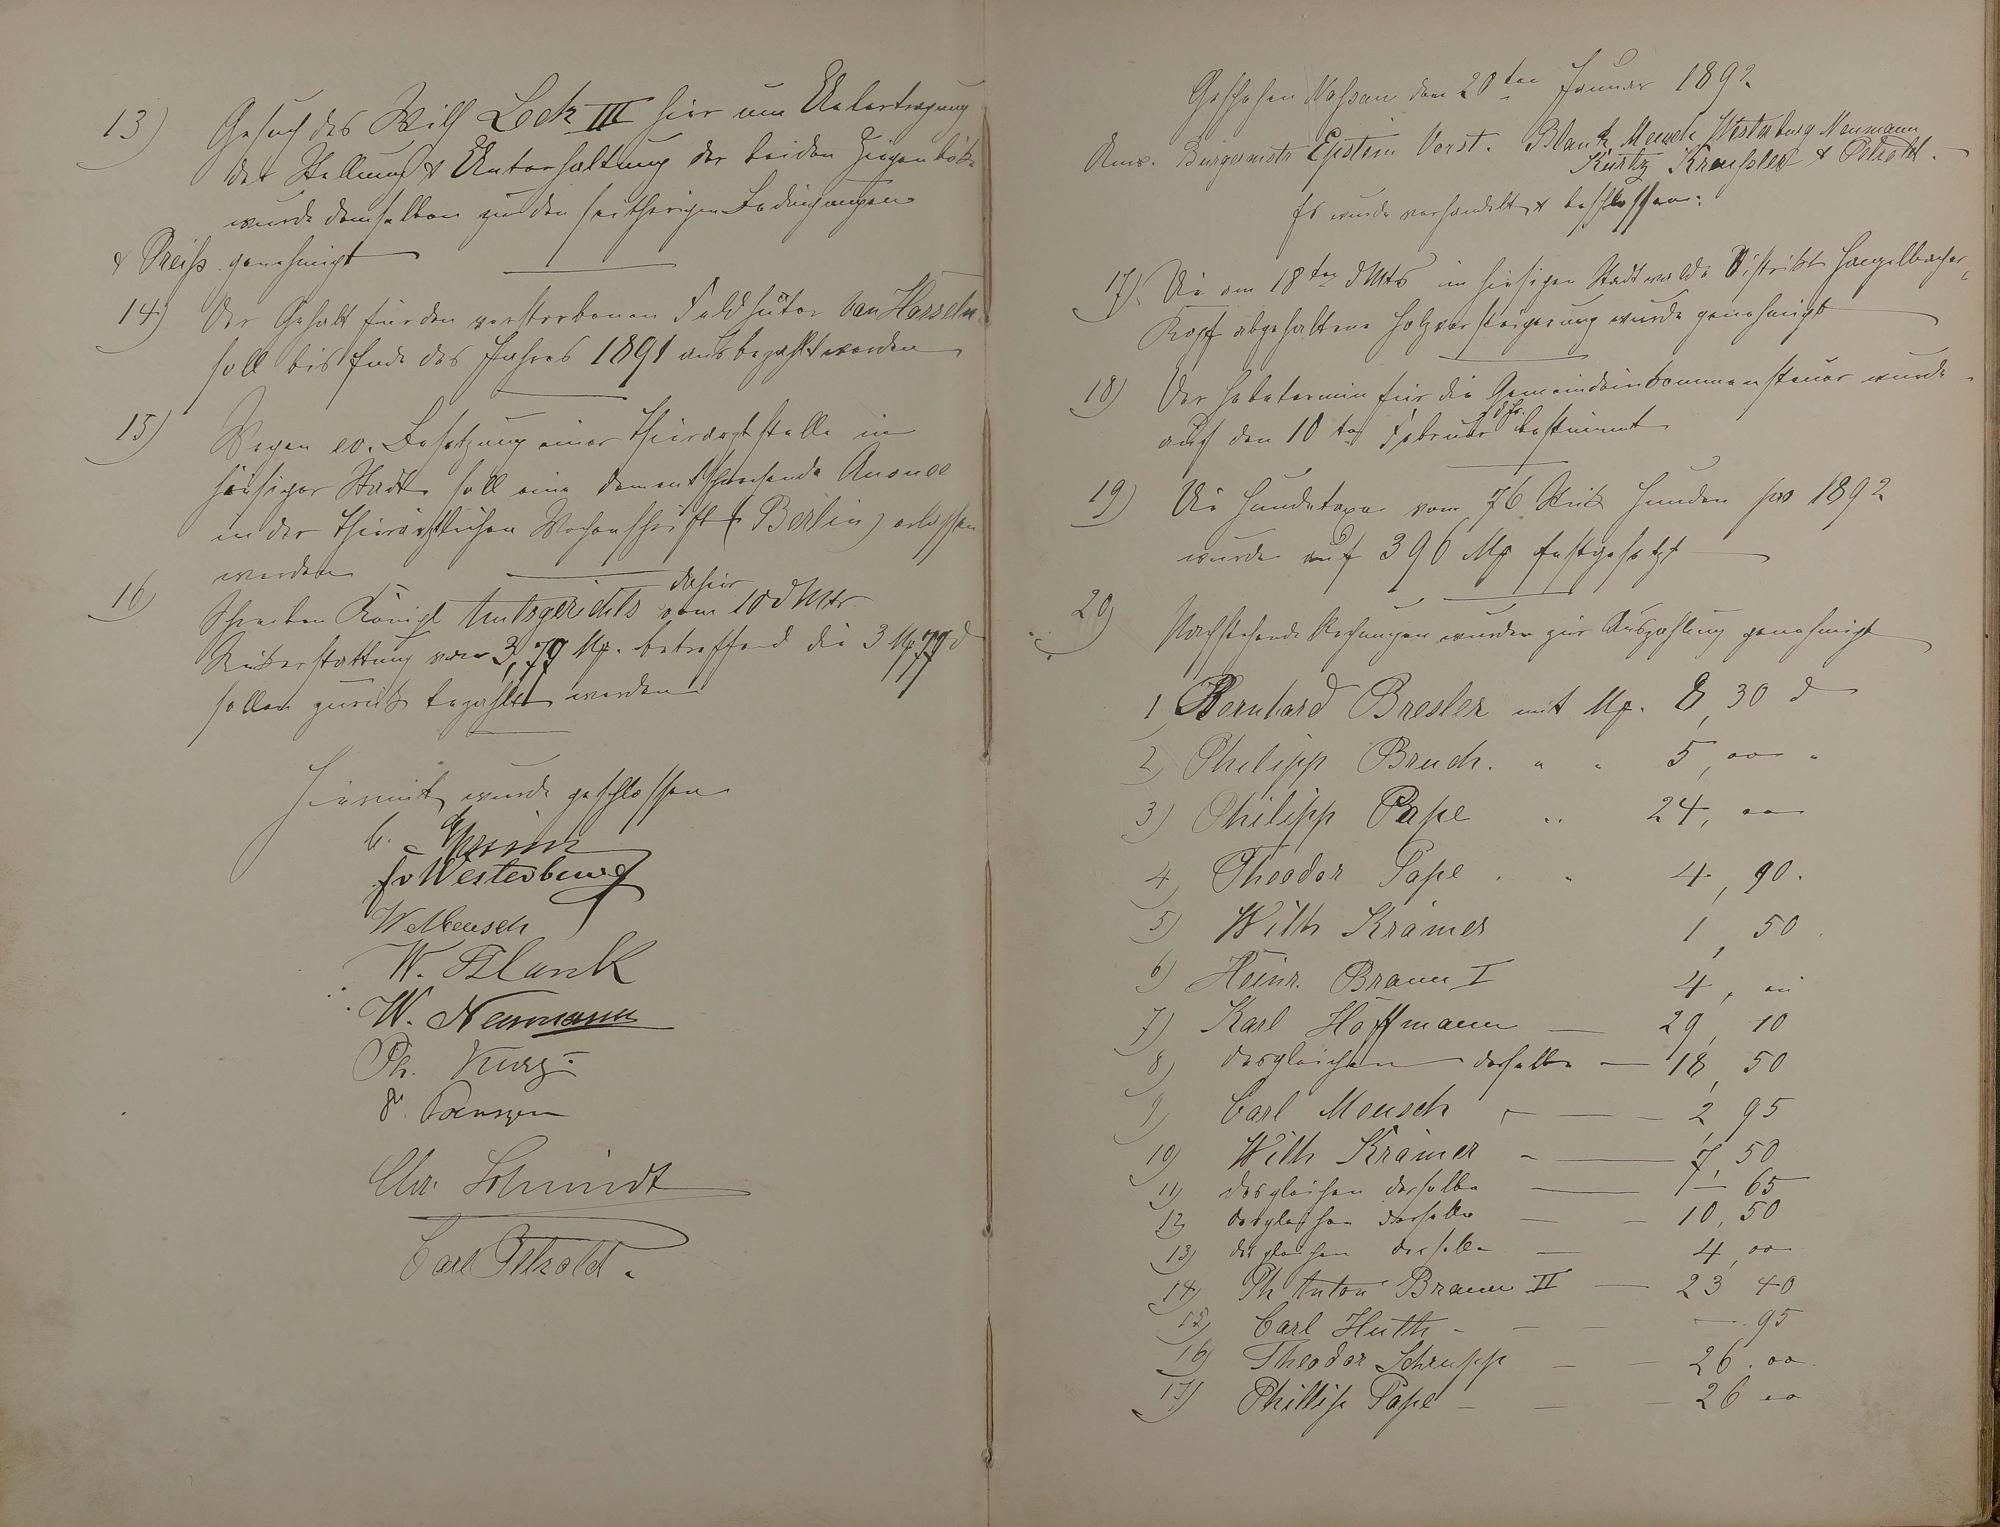 13) Gesuch des Wilh Lock III hier um Uebertragung
der Stellung & Unterhaltung der beiden Ziegenböcke
wurde demselben zu den seitherigen Bedingungen
& Preiß genehmigt
14) Der Gehalt für den verstorbenen Feldhüter van Hasseln
soll bis Ende des Jahres 1891 ausbezahlt werden
15) Wegen ev. Besetzung einer Thierarztstelle in
hiesiger Stadt soll eine dementsprechende Anonce
in der thierärztlichen Wochenschrift (Berlin) erlassen
werden
16) Schreiben Königl Amtsgerichts dahier vom 10 d Mts
Rückerstattung von 3,79 Mk. betreffend die 3 Mk 79 d
sollen zurück bezahlt werden
Hiermit wurde geschlossen
Fr Westerburg
W Mensch
W. Blank
W. Neumann
Ph. Kurz
Chr. Schmidt
Carl Petzold.
Geschehen Nassau den 20ten Januar 1892
Anw. Bürgermstr Epstein Vorst. Blank, Mensch, Westerburg Neumann
Kurtz Kraußler & Petzold.
Es wurde verhandelt & beschlossen:
17) Die am 18ten d Mts im hiesigen Stadtwalde Distrikt Hangelbacher
Kopf abgehaltene Holzversteigerung wurde genehmigt
18) Der Hebetermin für die Gemeindeinkommensteuer wurde
auf den 10ten Februar d Js. bestimmt
19) Die Hundetaxe vom 76 Stück Hunden pro 1892
wurde auf 396 Mk festgesetzt
20) Nachstehende Rechnungen wurden zur Auszahlung genehmigt
1 Bernhard Bresler mit Mk. 8,30 d
2) Philipp Bruch. " " 5,00 "
3) Philipp Pape " 24,00
4) Theodor Pape " " 4,90.
5) Wilh Krämer 1,50
6) Heinr. Braun I 4,00
7) Karl Hoffmann — 29,10
8) desgleichen derselbe — 18,50
9) Carl Mensch — 2,95
10) Wilh Krämer — 7,50
11) desgleichen derselbe — 1 — 65
12) desgleichen derselbe — 10,50
13) desgleichen derselbe — 4,00
14) Ph Anton Braun II — 23 40
15) Carl Huth — — — 95
16) Theodor Schrupp — — 26.00
17) Phillip Pape — — — 26 00